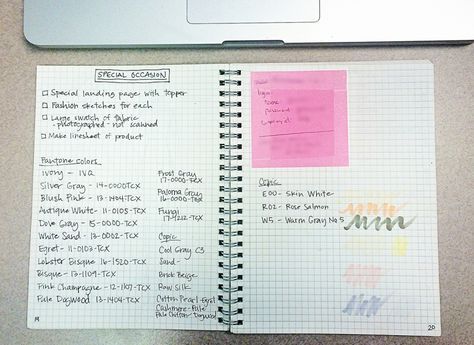 SPECIAL OCCASION
Special landing page with topper
Fashion sketches for each
Large swatch of fabric
- photographed - not scanned
Make linesheet of product
Pantone colors
Ivory - IVQ
Silver Gray - 14-0000TCX
Blush Pink - 13-1404TCX
Antique White - 11-0105-TCX
Dove Gray - 15-0000-TCX
White Sand - 13-0002-TCX
Egret - 11-0103-TCX
Lobster Bisque 16-1520-TCX
Bisque - 13-1109-TCX
Pink Champagne - 12-1107-TCX
Pale Dogwood 13-1404-TCX
Frost Gray
17-0000-TCX
Paloma Gray
16-0000-TCX
Fungi
17-4212-TCX
Copic
Cool Gray C3
Sand -
Brick Beige
Raw Silk
Cotton Pearl - Egret
Cashmere - Pale
Pale Cotton - Dogwood
19
login
Copic
E00 - Skin White
R02 - Rose Salmon
W5 - Warm Gray No 5
20